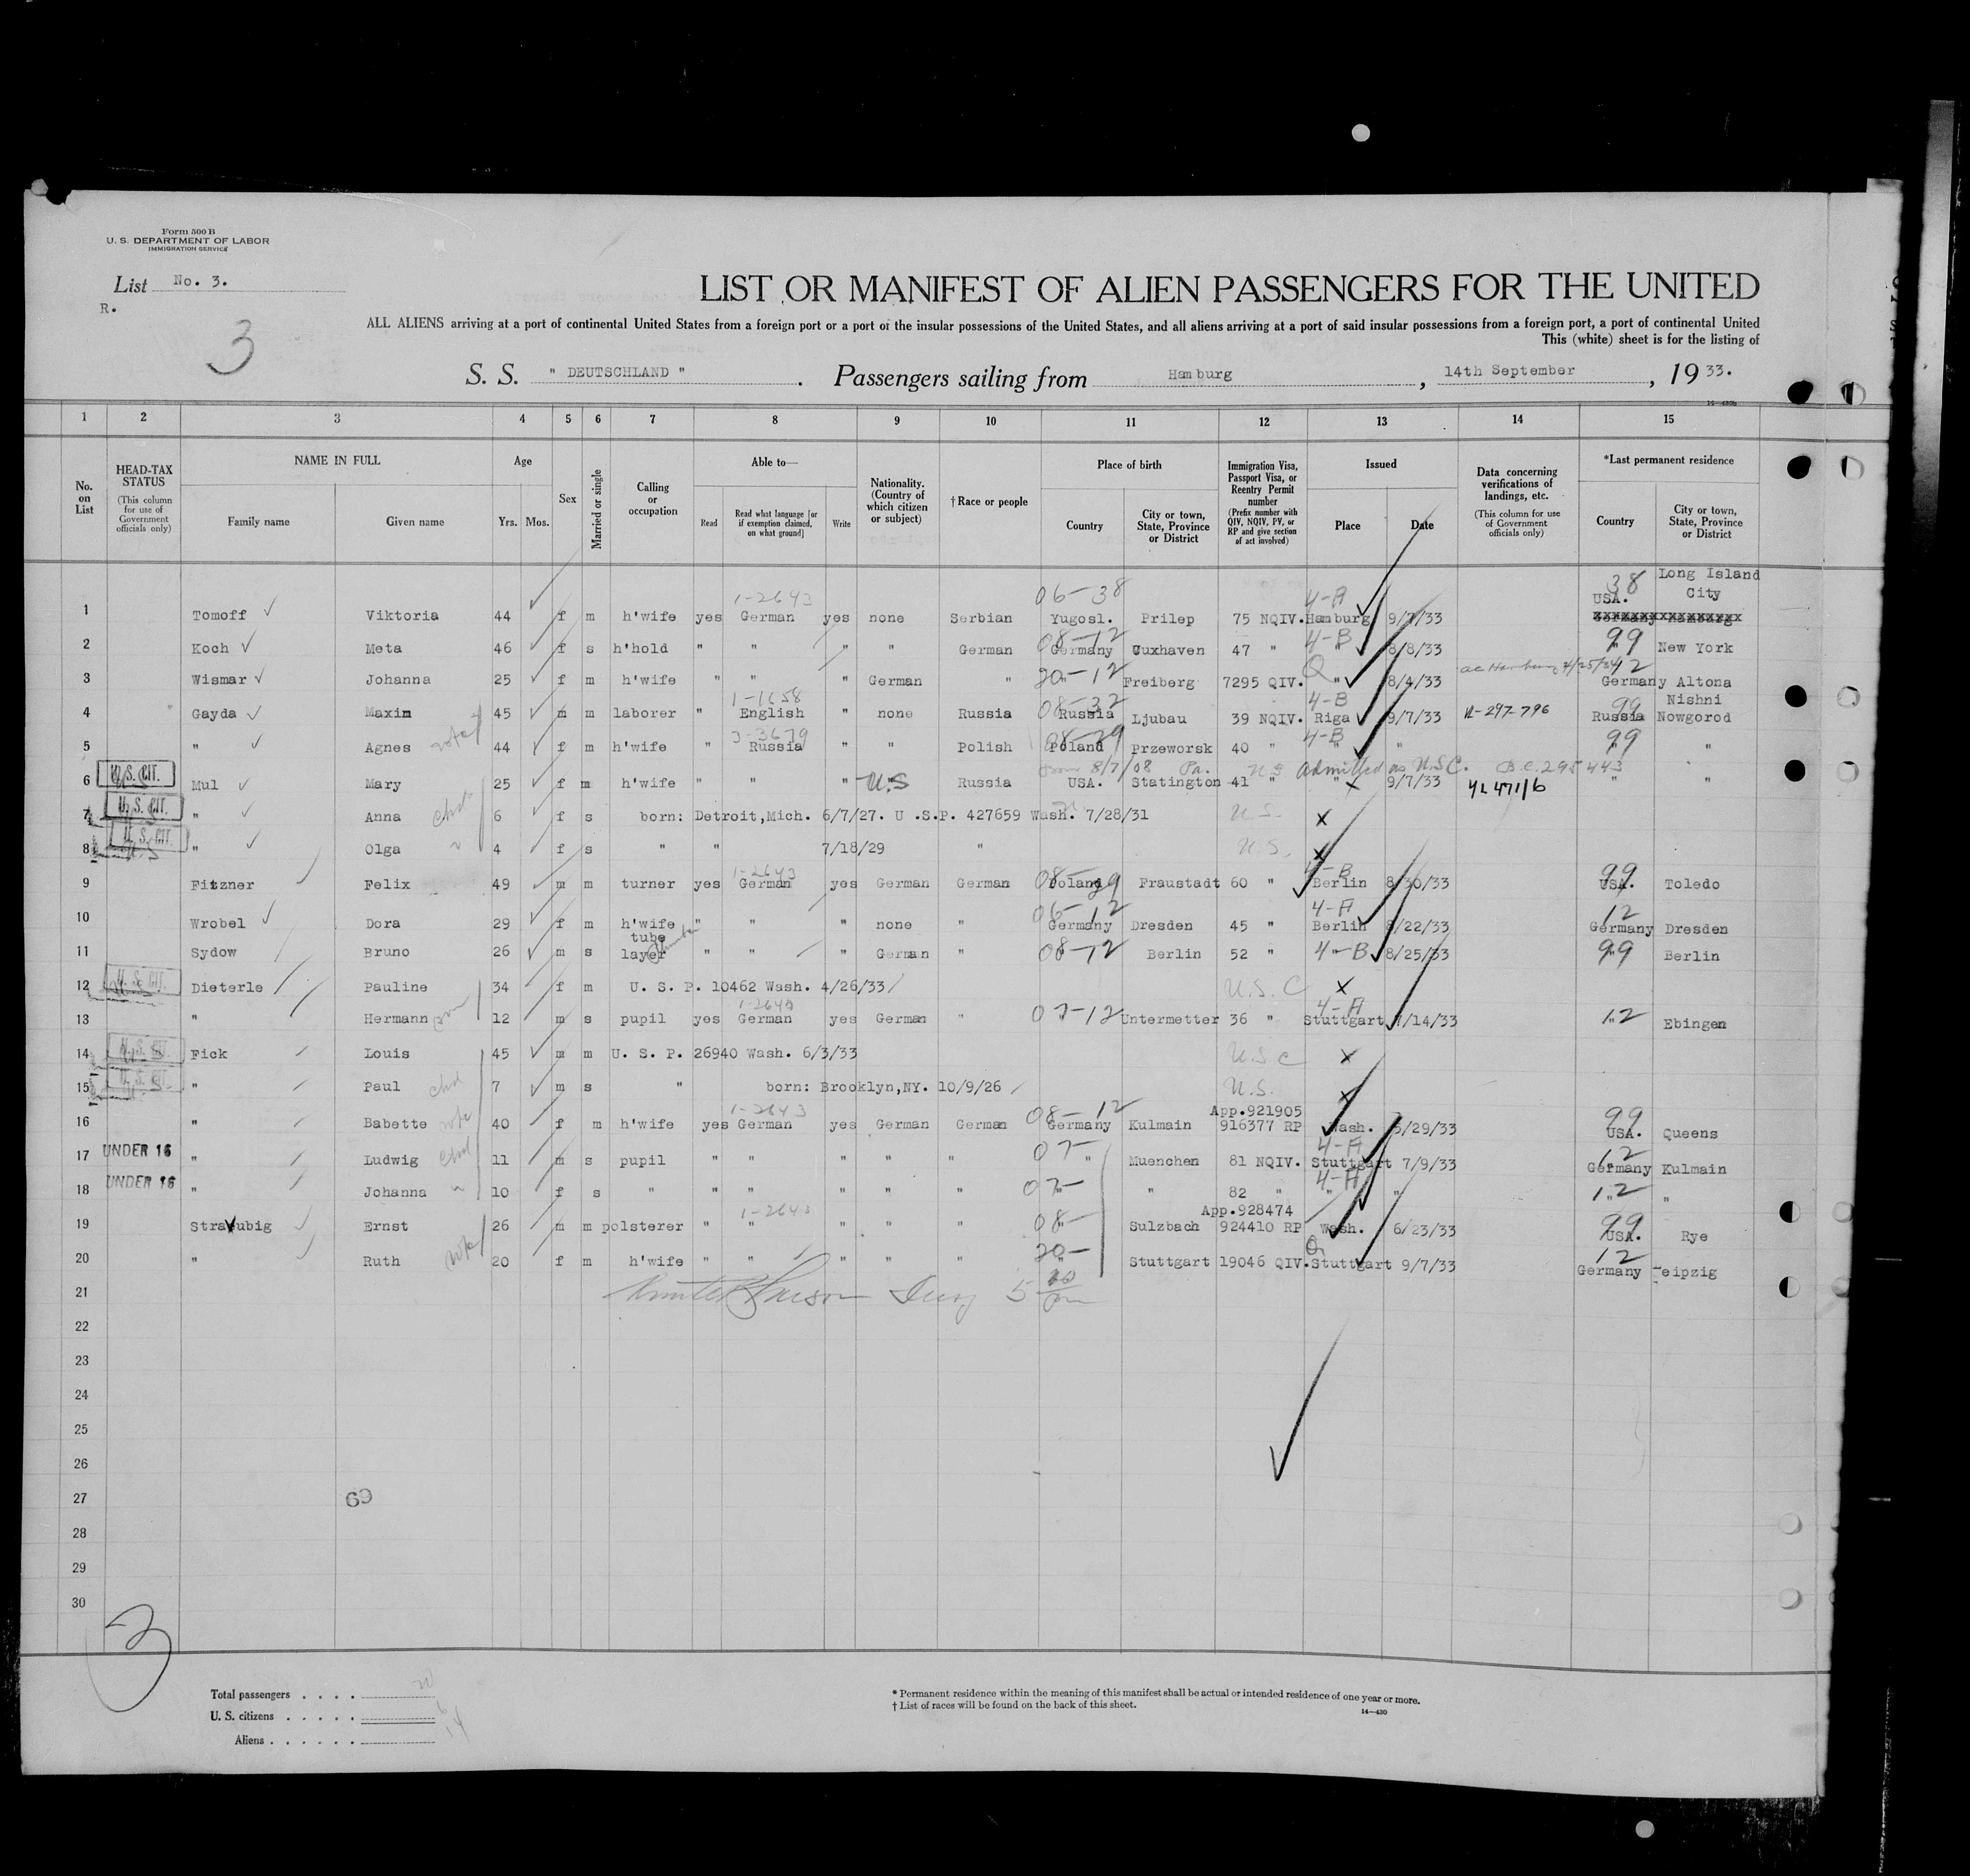 Form 500 B
U. S. DEPARTMENT OF LABOR
IMMIGRATION SERVICE
List No. 3.
R.
3
LIST OR MANIFEST OF ALIEN PASSENGERS FOR THE UNITED
ALL ALIENS arriving at a port of continental United States from a foreign port or a port of the insular possessions of the United States, and all aliens arriving at a port of said insular possessions from a foreign port, a port of continental United
This (white) sheet is for the listing of
S. S. " DEUTSCHLAND " . Passengers sailing from Hamburg , 14th September , 19 33.
1 2 3 4 5 6 7 8 9 10 11 12 13 14 15
No. on List
HEAD-TAX STATUS (This column for use of Government officials only)
NAME IN FULL Family name Given name
Age Yrs. Mos.
Sex
Married or single
Calling or occupation
Able to— Read Read what language [or if exemption claimed, on what ground] Write
Nationality. (Country of which citizen or subject)
† Race or people
Place of birth Country City or town, State, Province or District
Immigration Visa, Passport Visa, or Reentry Permit number (Prefix number with QIV, NQIV, PV, or RP and give section of act involved)
Issued Place Date
Data concerning verifications of landings, etc. (This column for use of Government officials only)
*Last permanent residence Country City or town, State, Province or District
1-2643 06-38 4-A 38 Long Island City
1 Tomoff Viktoria 44 f m h'wife yes German yes none Serbian Yugosl. Prilep 75 NQIV. Hamburg 9/7/33 USA.
08-12 4-B 99
2 Koch Meta 46 f s h'hold " " " " German Germany Cuxhaven 47 " " 8/8/33 New York
20-12 Q 12
3 Wismar Johanna 25 f m h'wife " " " German " " Freiberg 7295 QIV. " 8/4/33 Germany Altona
1-1658 08-32 4-B 99 Nishni
4 Gayda Maxim 45 m m laborer " English " none Russia Russia Ljubau 39 NQIV. Riga 9/7/33 Russia Nowgorod
3-3679 08-29 4-B 99
5 " Agnes 44 f m h'wife " Russia " " Polish Poland Przeworsk 40 " " " "
8/7/08 Pa. U S Admitted as U.S.C. B.C. 295443
U. S. CIT.
6 Mul Mary 25 f m h'wife " " " U.S Russia USA. Statington 41 " " 9/7/33 " "
U. S. CIT.
7 " Anna chd 6 f s born: Detroit,Mich. 6/7/27. U .S.P. 427659 Wash. 7/28/31 U.S. x
U. S. CIT.
8 " Olga 4 f s " " 7/18/29 " U.S. x
1-2643 08-29 4-B 99
9 Fitzner Felix 49 m m turner yes German yes German German Poland Fraustadt 60 " Berlin 8/30/33 USA. Toledo
06-12 4-A 12
10 Wrobel Dora 29 f m h'wife " " " none " Germany Dresden 45 " Berlin 8/22/33 Germany Dresden
tube
11 Sydow Bruno 26 m s layer " " " German " 08-12 Berlin 52 " 4-B 8/25/33 99 Berlin
U. S. CIT.
12 Dieterle Pauline 34 f m U. S. P. 10462 Wash. 4/26/33 U.S.C x
1-2643 07-12 4-A 12
13 " Hermann 12 m s pupil yes German yes German " Untermetter 36 " Stuttgart 7/14/33 " Ebingen
U. S. CIT.
14 Fick Louis 45 m m U. S. P. 26940 Wash. 6/3/33 U.S.C x
U. S. CIT.
15 " Paul chd 7 m s " born: Brooklyn,NY. 10/9/26 U.S. x
1-2643 08-12 App.921905 99
16 " Babette 40 f m h'wife yes German yes German German Germany Kulmain 916377 RP Wash. 5/29/33 USA. Queens
07- 4-A 12
17 UNDER 16 " Ludwig chd 11 m s pupil " " " " " " Muenchen 81 NQIV. Stuttgart 7/9/33 Germany Kulmain
07- 4-A 12
18 UNDER 16 " Johanna 10 f s " " " " " " " 82 " " " " "
1-2643 08- App.928474 99
19 Straubig Ernst 26 m m polsterer " " " " " " Sulzbach 924410 RP Wash. 6/23/33 USA. Rye
20- Q 12
20 " Ruth 20 f m h'wife " " " " " " Stuttgart 19046 QIV. Stuttgart 9/7/33 Germany Leipzig
21
22
23
24
25
26
27 69
28
29
30
3
Total passengers . . . . 20
U. S. citizens . . . . . 6
Aliens . . . . . . 14
* Permanent residence within the meaning of this manifest shall be actual or intended residence of one year or more.
† List of races will be found on the back of this sheet.
14—430